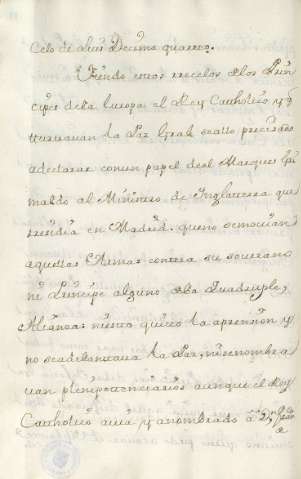 celo de Luis Decimo quarto.
Viendo estos recelos de los Prin
cipes de la Europa el Rey Catholico y q.e
atrasavan la Paz
a declarar con un papel del Marques Gri
maldo al Ministro de Inglaterra que
residia en Madrid, que no se movian
aquellas Armas contra su soverano
ni Principe alguno de la Quadruple
Alianza: ni esto quitó la aprension y
no se adelantava la Paz, ni se nombra
van plenipotenciarios aunque el Rey
Catholico avia ya nombrado a